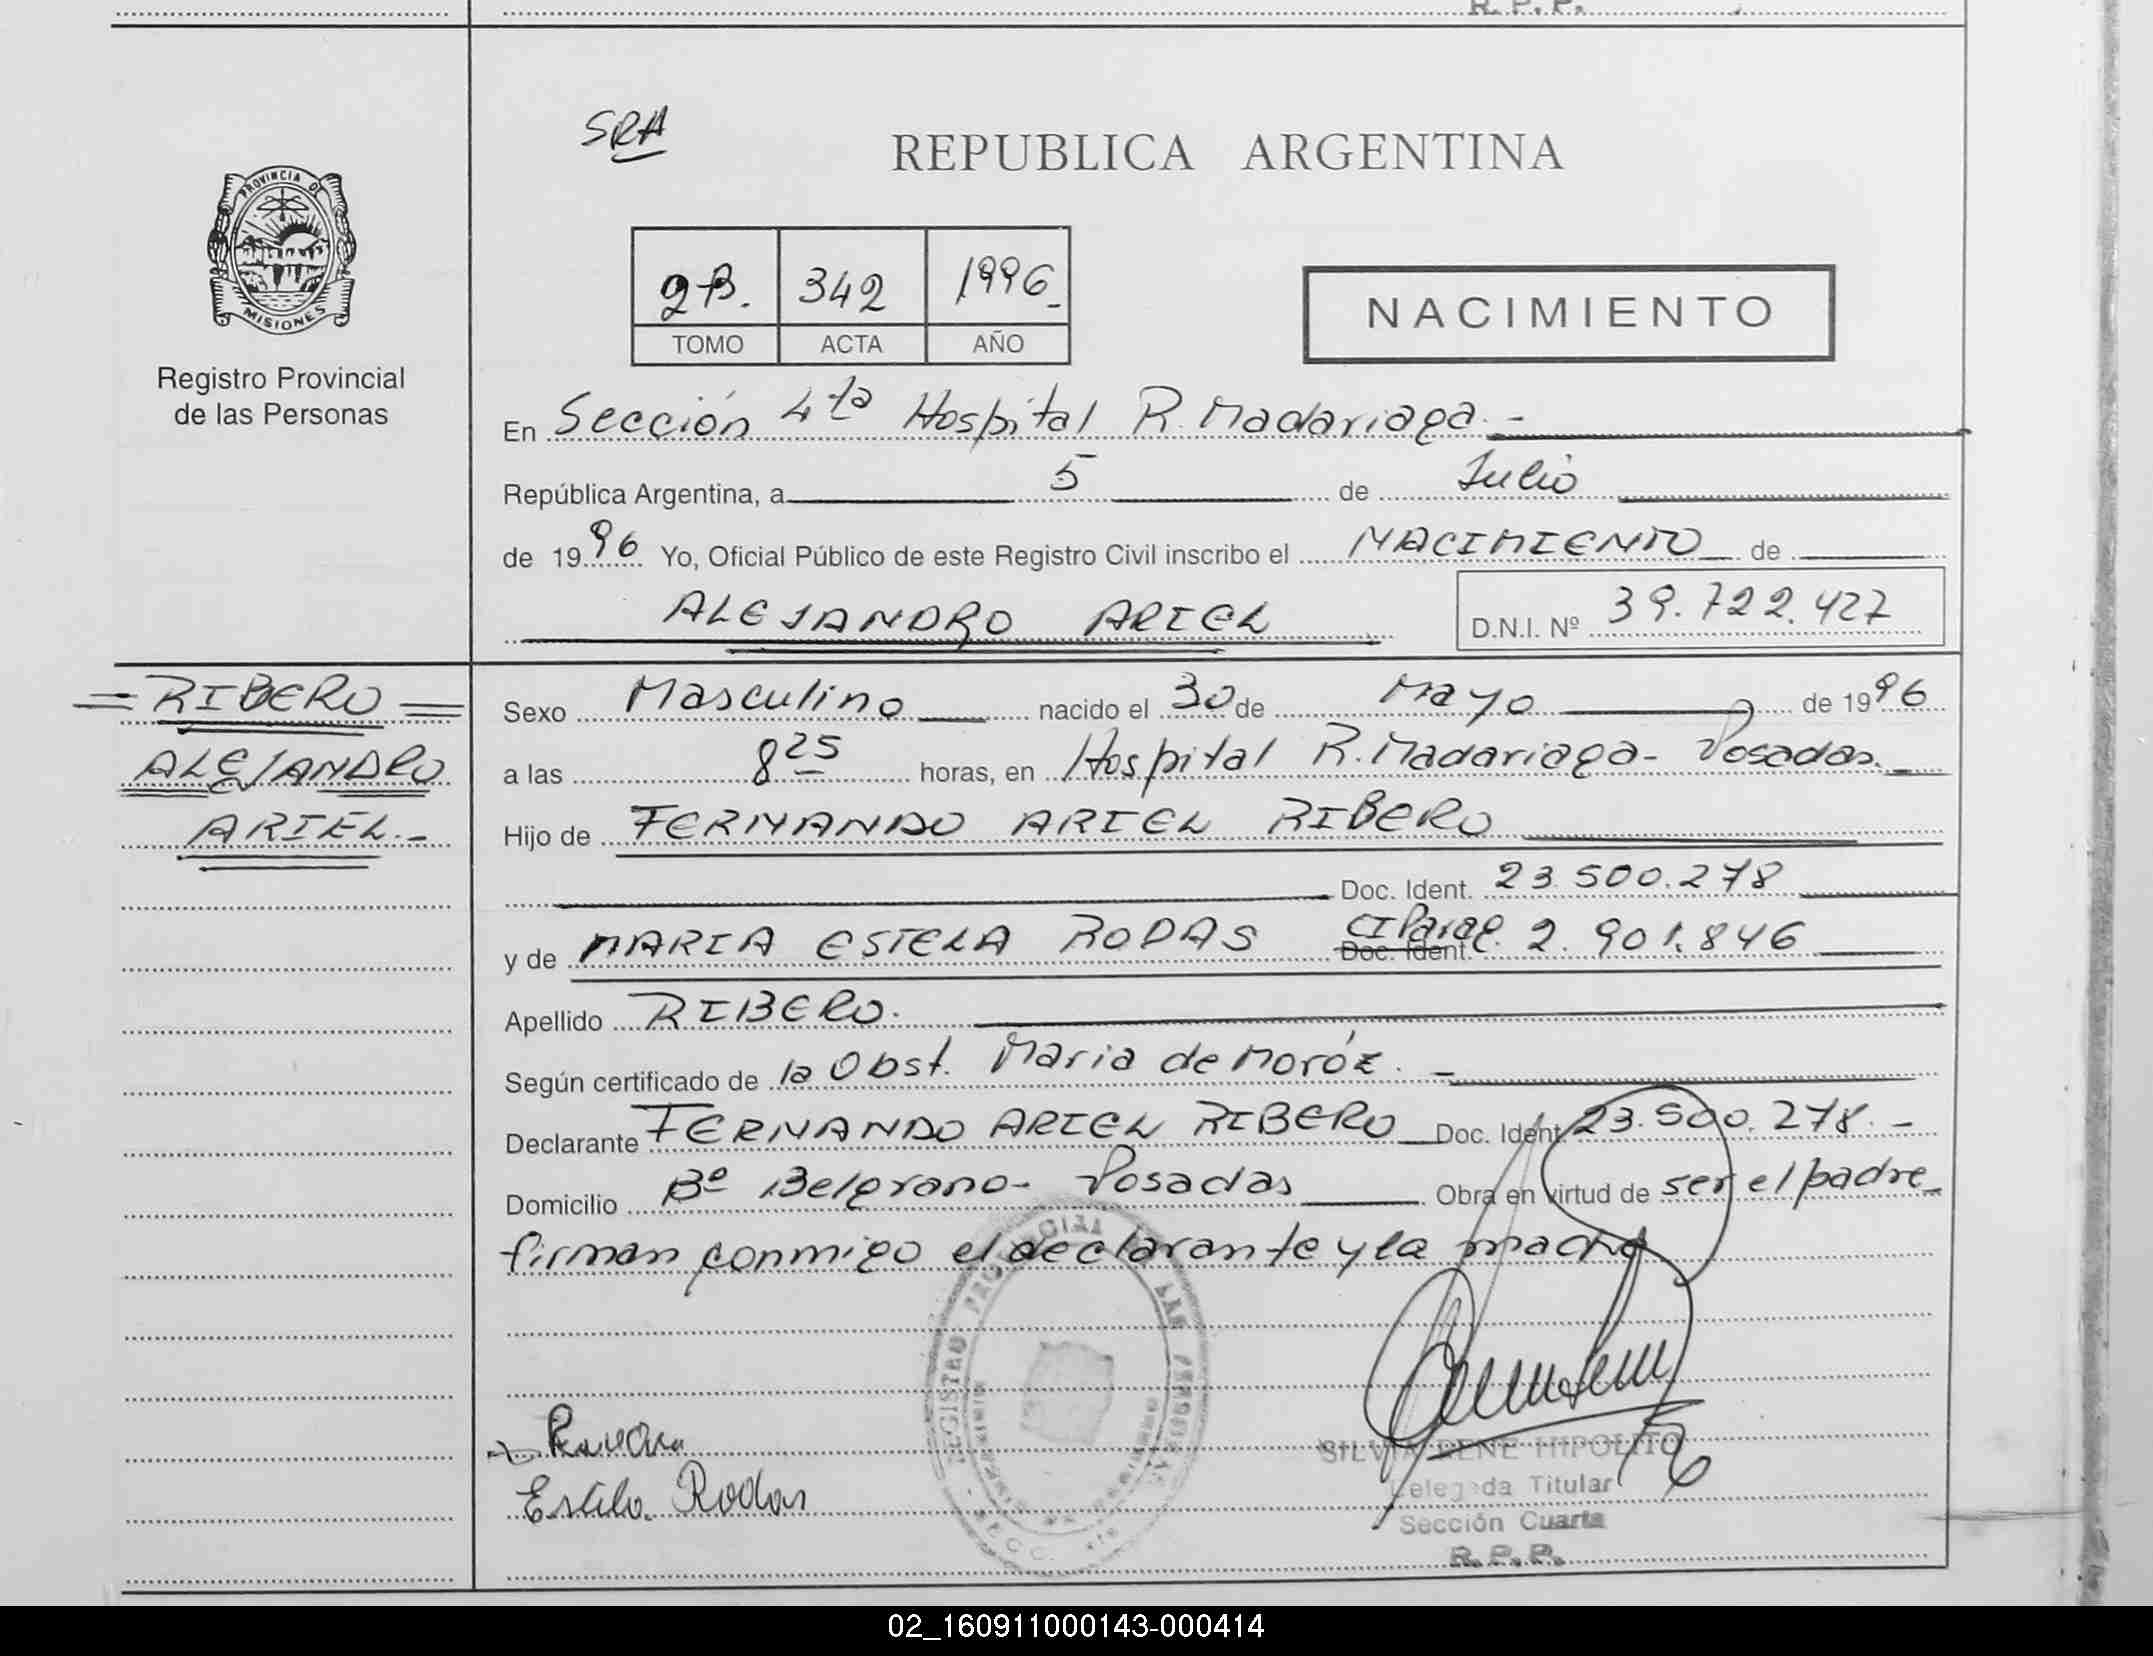 R. P. P.
SRA
REPUBLICA ARGENTINA
PROVINCIA DE
MISIONES
Registro Provincial
de las Personas
2B. 342 1996
TOMO ACTA AÑO
NACIMIENTO
En Sección 4ta Hospital R. Madariaga.-
República Argentina, a 5 de Julio
de 1996 Yo, Oficial Público de este Registro Civil inscribo el NACIMIENTO de
ALEJANDRO ARIEL D.N.I. Nº 39.722.427
= RIBERO =
ALEJANDRO
ARIEL.-
Sexo Masculino nacido el 30 de Mayo de 1996
a las 8 25 horas, en Hospital R. Madariaga- Posadas.-
Hijo de FERNANDO ARIEL RIBERO
Doc. Ident. 23.500.278
y de MARIA ESTELA RODAS Doc. Ident. CI Parag. 2.901.846
Apellido RIBERO.
Según certificado de la Obst. Maria de Moróz. -
Declarante FERNANDO ARIEL RIBERO Doc. Ident. 23.500.278.-
Domicilio Bº Belgrano- Posadas Obra en virtud de ser el padre
firman conmigo el declarante y la madre
REGISTRO PROVINCIAL DE LAS PERSONAS
SECC.
Estela Rodas
SILVIA RENE HIPOLITO
Delegada Titular
Sección Cuarta
R. P. P.
02_160911000143-000414